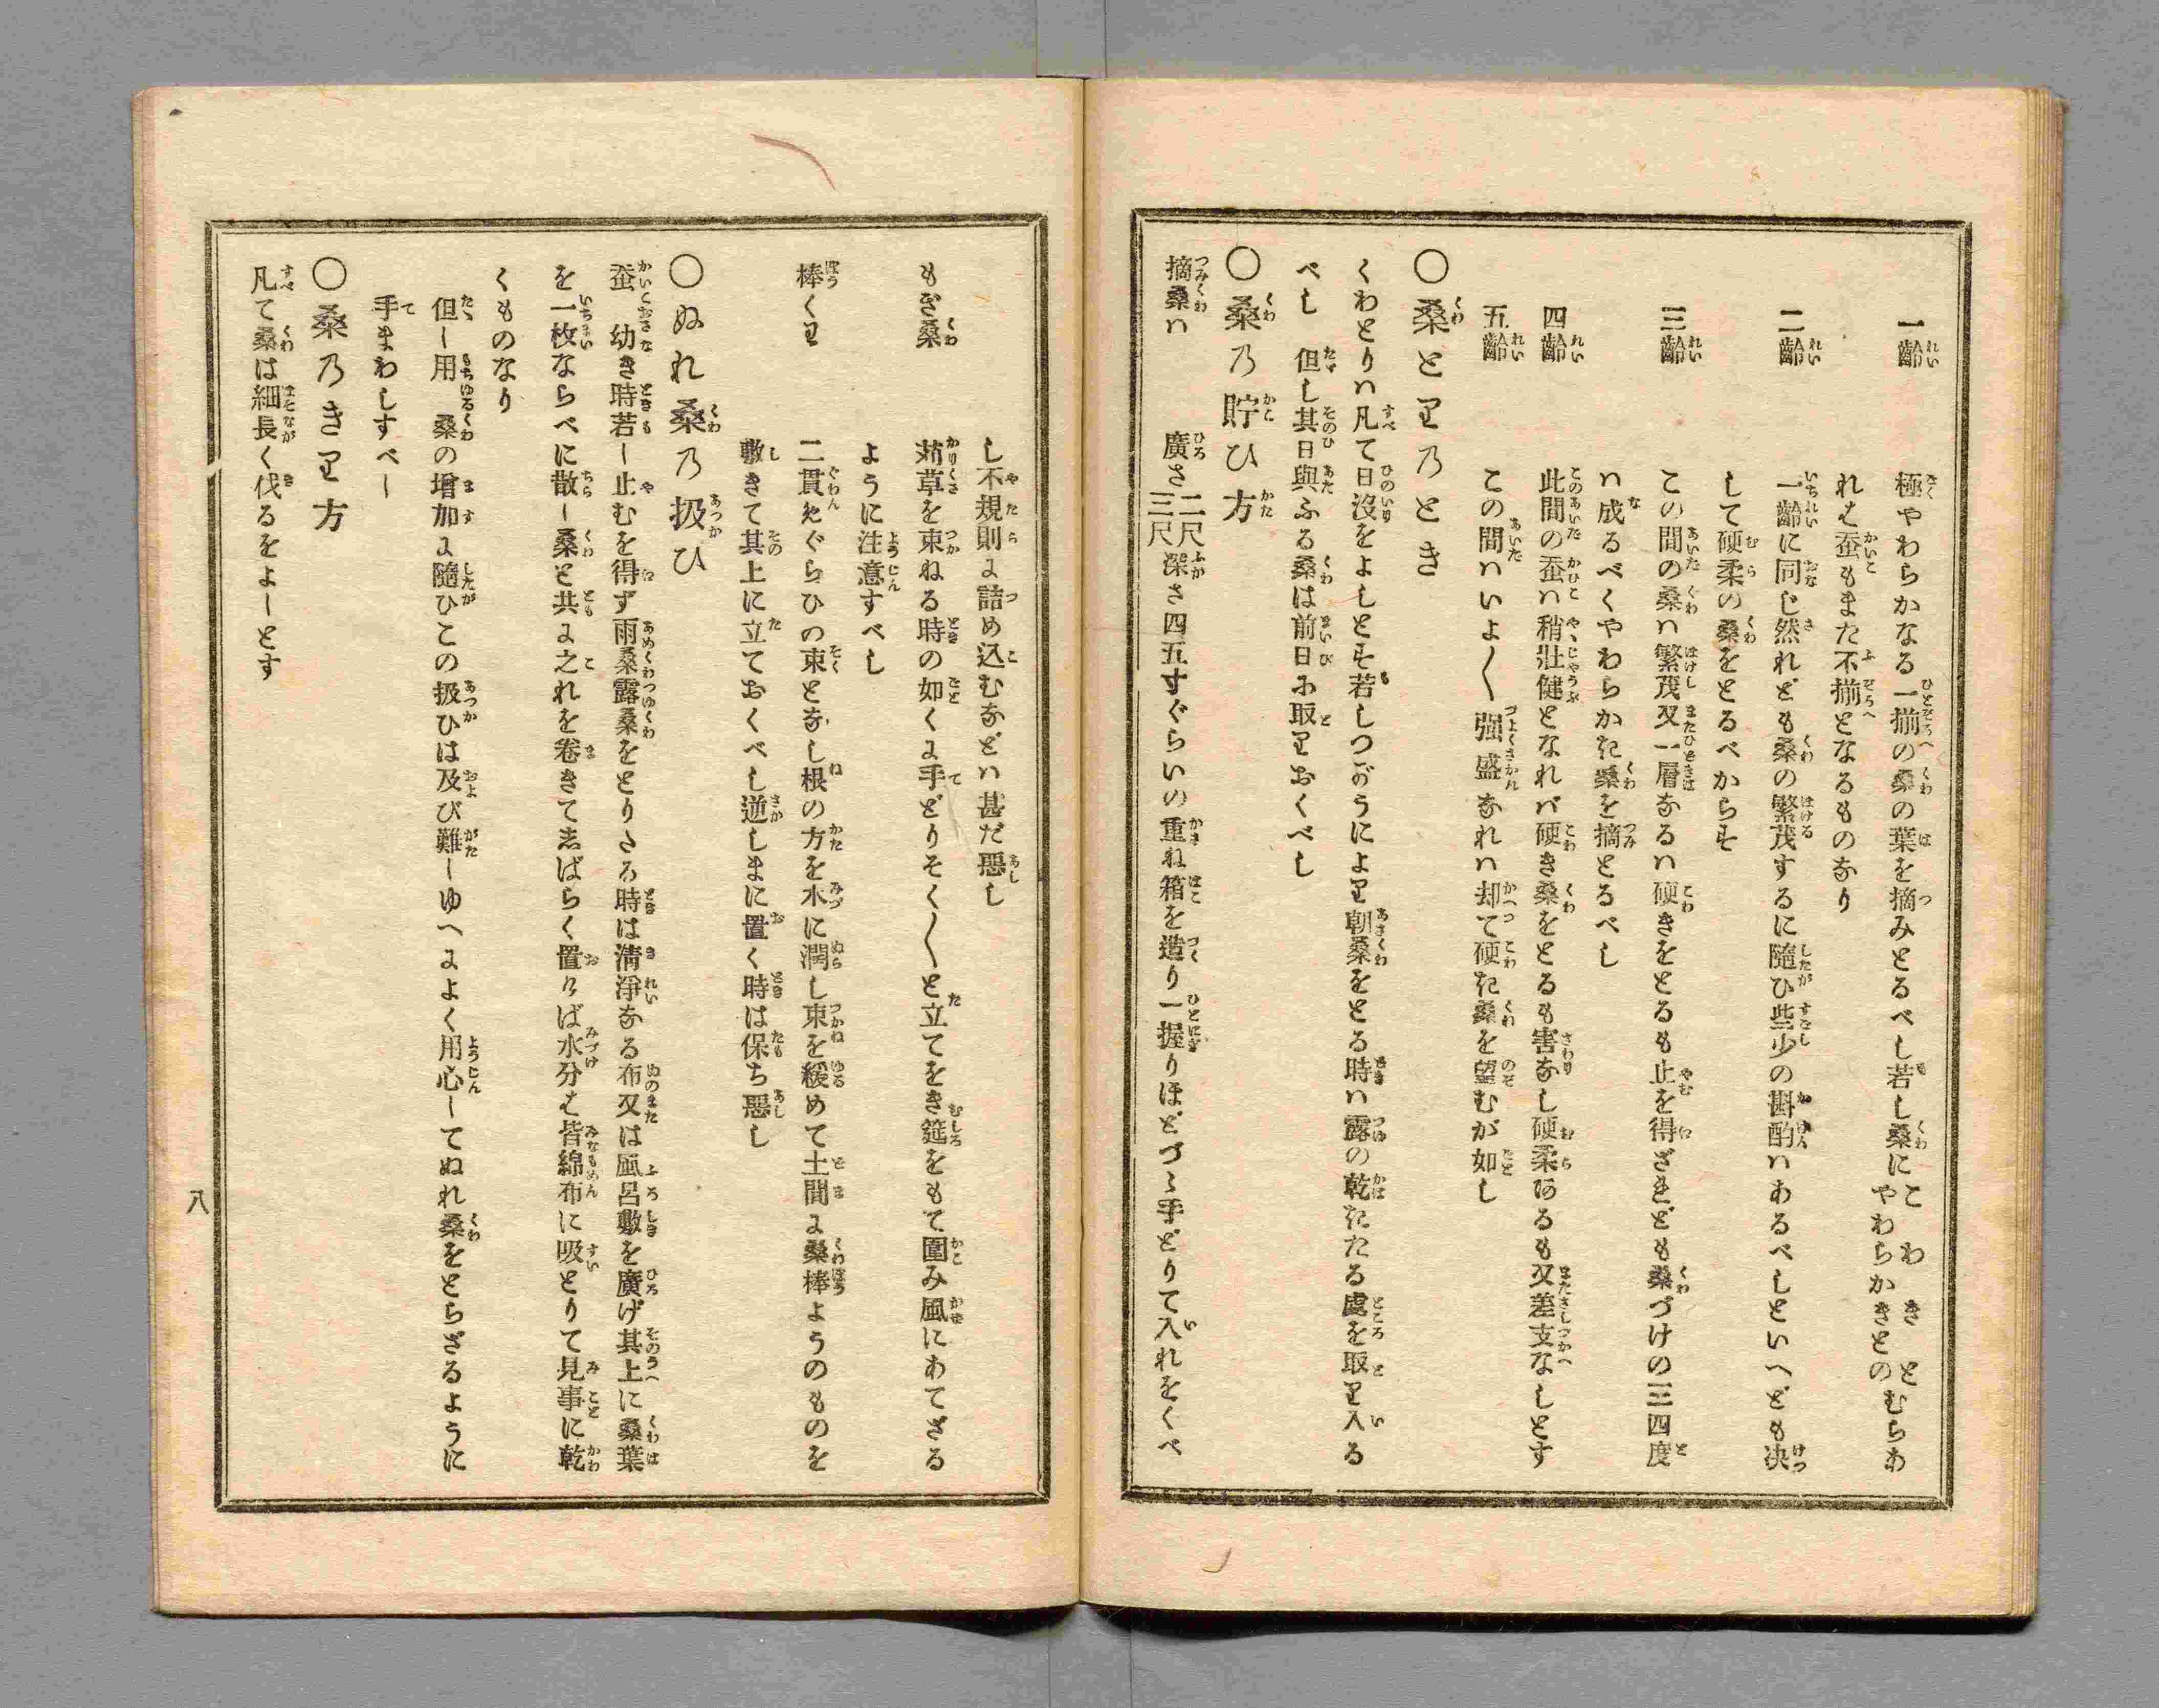 一齡　極やわらかなる一揃の桑の葉を摘みとるべし若し桑にこわきとやわらかきとのむらあ
れば蚕もまた不揃となるものなり
二齡　一齡に同じ然れども桑の繁茂するに隨ひ些少の斟酌ハあるべしといへども决
して硬柔の桑をとるべからず
三齡　この間の桑ハ繁茂又一層なるハ硬きをとるも止を得ざれども桑づけの三四度
ハ成るべくやわらかき桑を摘とるべし
四齡　此間の蚕ハ稍壯健となれバ硬き桑をとるも害なし硬柔あるも又差支なしとす
五齡　この間ハいよ〱强盛なれハ却て硬き桑を望むが如し
〇桑とり乃とき
くわとりハ凡て日沒をよしとす若しつがうにより朝桑をとる時ハ露の乾きたる處を取り入る
べし　但し其日與ふる桑は前日に取りおくべし
〇桑乃貯ひ方
摘桑ハ　廣さ二尺三尺深さ四五寸ぐらいの重ね箱を造り一握りほどづゝ手どりて入れをくべ
し不規則に詰め込むなどハ甚だ惡し
もぎ桑　苅草を束ねる時の如くに手どりそく〱と立てをき筵をもて圍み風にあてざる
ように注意すべし
棒くり　二貫匁ぐらひの束となし根の方を水に潤し束を緩めて土間に桑棒ようのものを
敷きて其上に立ておくべし逆しまに置く時は保ち惡し
〇ぬれ桑乃扱ひ
蚕幼き時若し止むを得ず雨桑露桑をとりたる時は淸淨なる布又は風呂敷を廣げ其上に桑葉
を一枚ならべに散し桑と共に之れを卷きて志ばらく置けば水分は皆綿布に吸とりて見事に乾
くものなり
但し用桑の增加に隨ひこの扱ひは及び難しゆへによく用心してぬれ桑をとらざるように
手まわしすべし
〇桑乃きり方
凡て桑は細長く伐るをよしとす
八